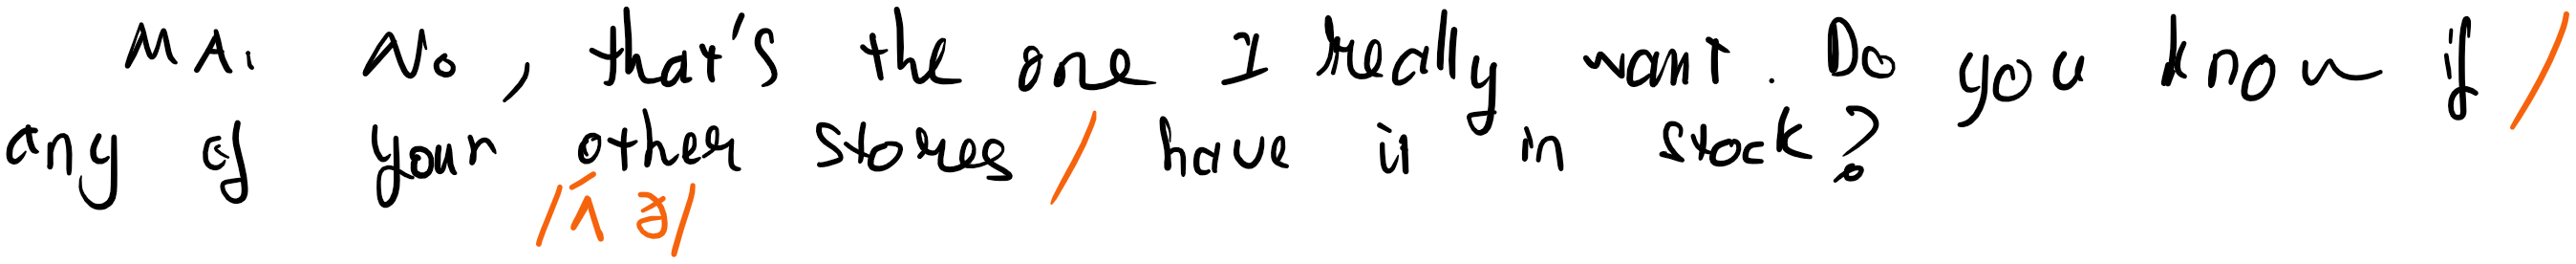 MA. No, that's the one I really want. Do you know if /
any of your other stores / have it in stock?
/ʌ́ ə/